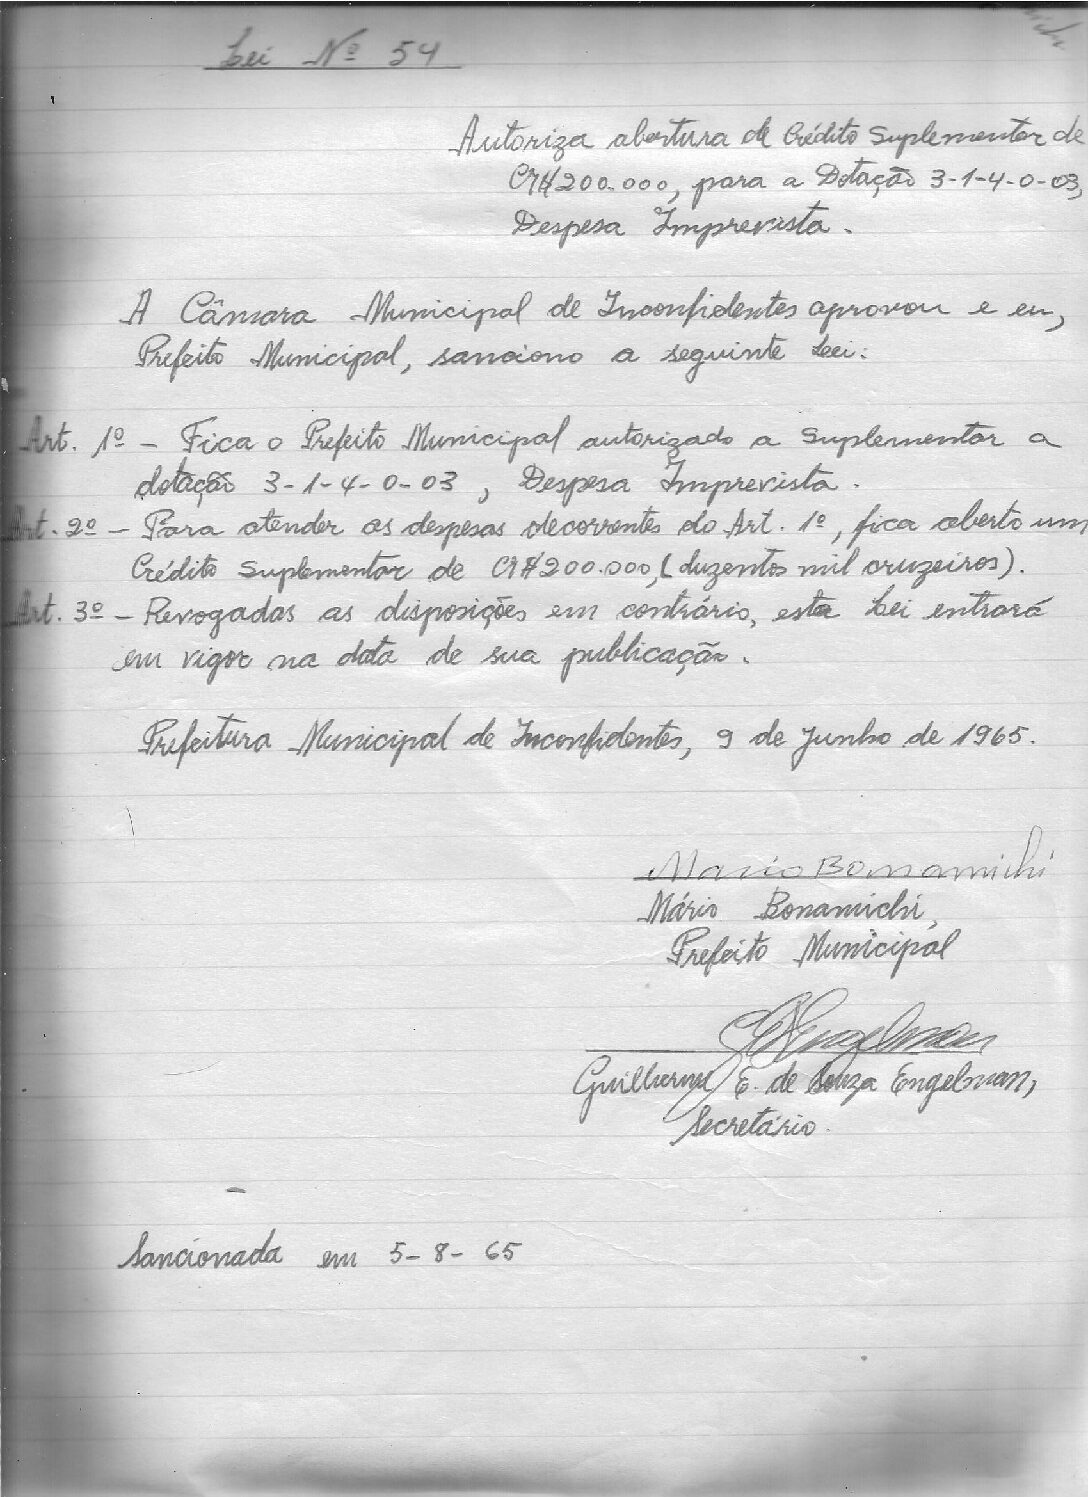 Lei Nº 54
Autoriza abertura de Crédito Suplementar de
CR$200.000, para a Dotação 3-1-4-0-03,
Despesa Imprevista.
A Câmara Municipal de Inconfidentes aprovou e eu,
Prefeito Municipal, sanciono a seguinte Lei:
Art. 1º - Fica o Prefeito Municipal autorizado a suplementar a
dotação 3-1-4-0-03, Despesa Imprevista.
Art. 2º - Para atender as despesas decorrentes do Art. 1º, fica aberto um
Crédito Suplementar de CR$200.000, (duzentos mil cruzeiros).
Art. 3º - Revogadas as disposições em contrário, esta Lei entrará
em vigor na data de sua publicação.
Prefeitura Municipal de Inconfidentes, 9 de Junho de 1965.
Mario Bonamichi
Mário Bonamichi,
Prefeito Municipal
Engelman
Guilherme E. de Souza Engelman,
Secretário.
Sancionada em 5-8-65